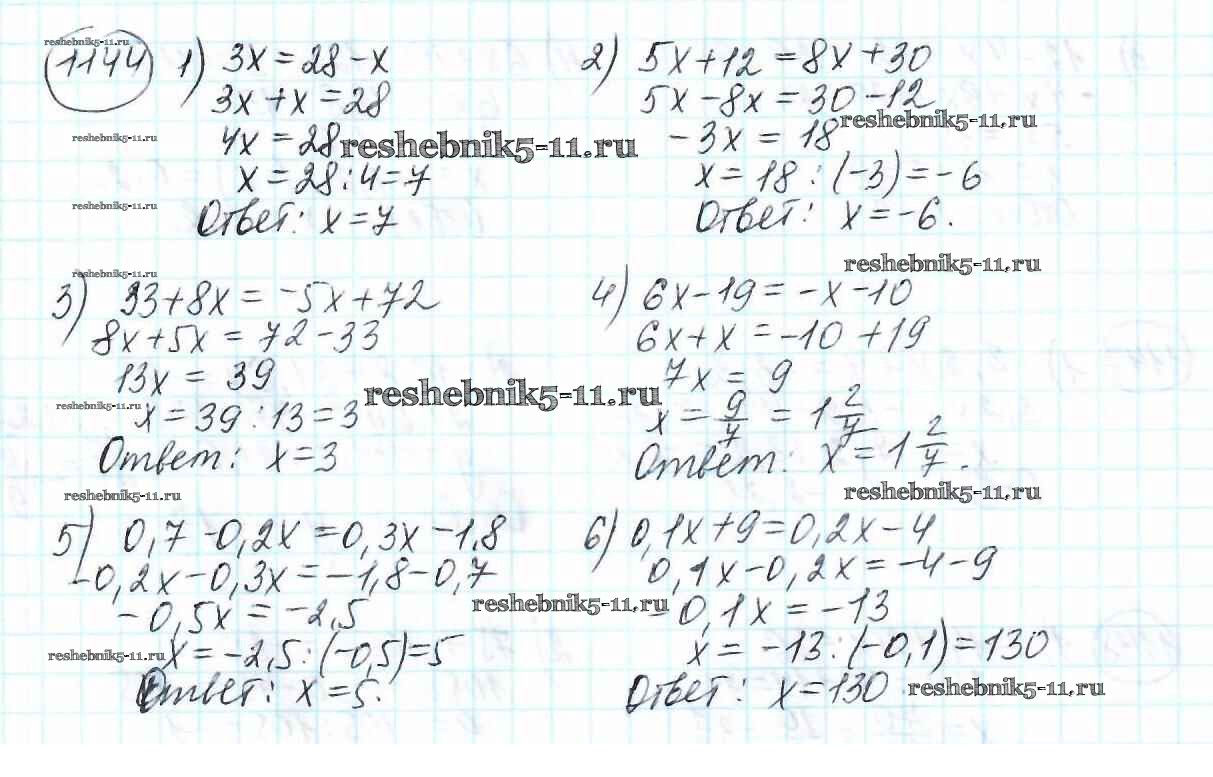 reshebnik5-11.ru
1144 1) 3x = 28 - x
3x + x = 28
reshebnik5-11.ru
4x = 28
reshebnik5-11.ru
x = 28 : 4 = 7
reshebnik5-11.ru
Ответ: x = 7
2) 5x + 12 = 8x + 30
5x - 8x = 30 - 12
reshebnik5-11.ru
- 3x = 18
x = 18 : (-3) = -6
Ответ: x = -6.
reshebnik5-11.ru
reshebnik5-11.ru
3) 33 + 8x = -5x + 72
8x + 5x = 72 - 33
13x = 39
reshebnik5-11.ru
reshebnik5-11.ru
x = 39 : 13 = 3
Ответ: x = 3
4) 6x - 19 = -x - 10
6x + x = -10 + 19
7x = 9
x = 9/7 = 1 2/7
Ответ: x = 1 2/7.
reshebnik5-11.ru
reshebnik5-11.ru
5) 0,7 - 0,2x = 0,3x - 1,8
-0,2x - 0,3x = -1,8 - 0,7
- 0,5x = -2,5
reshebnik5-11.ru
reshebnik5-11.ru
x = -2,5 : (-0,5) = 5
Ответ: x = 5.
6) 0,1x + 9 = 0,2x - 4
0,1x - 0,2x = -4 - 9
- 0,1x = -13
x = -13 : (-0,1) = 130
Ответ: x = 130
reshebnik5-11.ru